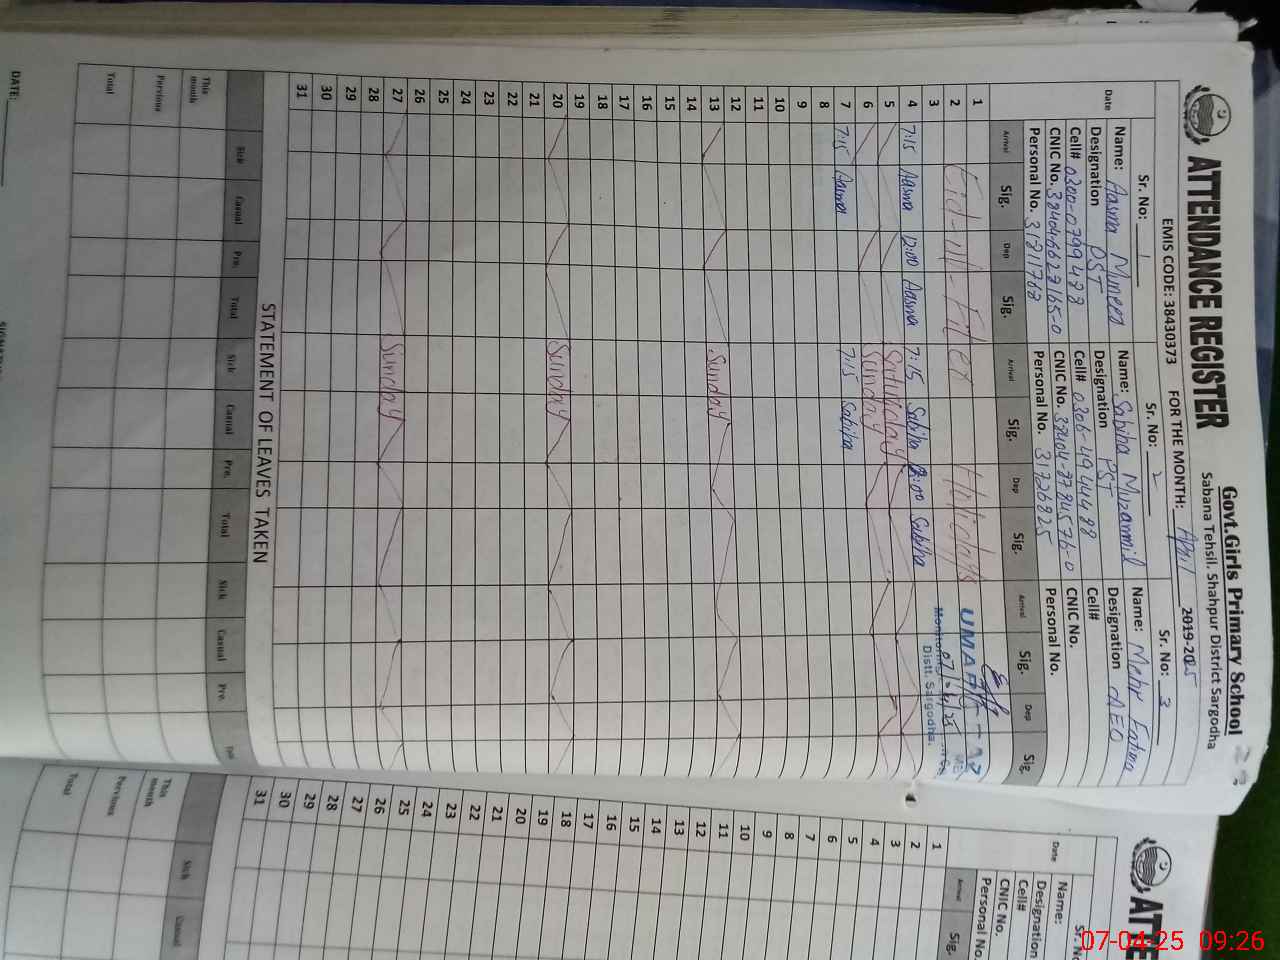 ATTENDANCE REGISTER
Govt.Girls Primary School
Sabana Tehsil. Shahpur District Sargodha
EMIS CODE: 38430373 FOR THE MONTH: April 2019-2025
Sr. No: 1
Name: Aasma Muneer
Designation PST
Cell# 0300-0799478
CNIC No.
Personal No. 31211762
Sr. No: 2
Name: Sabiha Muzammil
Designation PST
Cell# 0306-4944488
CNIC No. 38404-8784576-0
Personal No. 31726825
Sr. No: 3
Name: Mehr Fatima
Designation AEO
Cell#
CNIC No.
Personal No.
Date Arrival Sig. Dep Sig. Arrival Sig. Dep Sig. Arrival Sig. Dep Sig.
1
2 Eid-ul-Fiter Holidays
3
4 7:15 Aasma 12:00 Aasma 7:15 Sabiha 12:00 Sabiha
5 Saturday
6 Sunday
7 7:15 Aasma 7:15 Sabiha
8
9
10
11
12
13 Sunday
14
15
16
17
18
19
20 Sunday
21
22
23
24
25
26
27 Sunday
28
29
30
31
07/04/25
Distt. Sargodha.
STATEMENT OF LEAVES TAKEN
Sick Casual Pre. Total Sick Casual Pre. Total Sick Casual Pre.
This month
Pervious
Total
DATE:
Date
Name:
Designation
Cell#
CNIC No.
Personal No.
Arrival Sig.
1
2
3
4
5
6
7
8
9
10
11
12
13
14
15
16
17
18
19
20
21
22
23
24
25
26
27
28
29
30
31
Sick Casual
This month
Pervious
Total
07-04-25 09:26